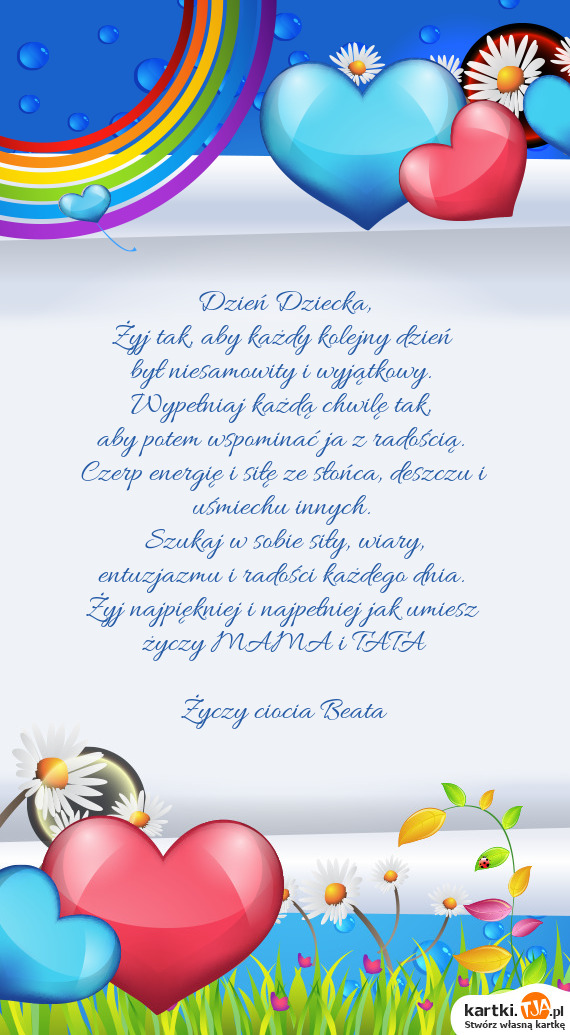 Dzień Dziecka,
Żyj tak, aby każdy kolejny dzień
był niesamowity i wyjątkowy.
Wypełniaj każdą chwilę tak,
aby potem wspominać ja z radością.
Czerp energię i siłę ze słońca, deszczu i
uśmiechu innych.
Szukaj w sobie siły, wiary,
entuzjazmu i radości każdego dnia.
Żyj najpiękniej i najpełniej jak umiesz
życzy MAMA i TATA
Życzy ciocia Beata
kartki.TJA.pl
Stwórz własną kartkę